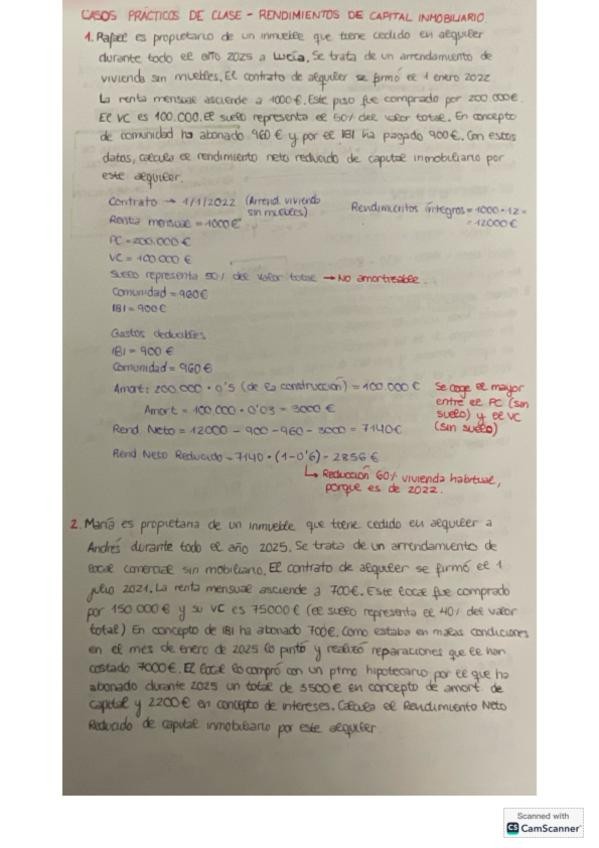 CASOS PRÁCTICOS DE CLASE - RENDIMIENTOS DE CAPITAL INMOBILIARIO
1. Rafael es propietario de un inmueble que tiene cedido en alquiler
durante todo el año 2025 a Lucía. Se trata de un arrendamiento de
vivienda sin muebles. El contrato de alquiler se firmó el 1 enero 2022
La renta mensual asciende a 1000€. Este piso fue comprado por 200.000€.
El VC es 100.000. El suelo representa el 50% del valor total. En concepto
de comunidad ha abonado 960€ y por el IBI ha pagado 900€. Con estos
datos, calcula el rendimiento neto reducido de capital inmobiliario por
este alquiler.
Contrato → 1/1/2022 (Arrend. vivienda
sin muebles)
Rendimientos íntegros = 1000·12 =
= 12000€
Renta mensual = 1000€
PC = 200.000€
VC = 100.000€
Suelo representa 50% del valor total → No amortizable.
Comunidad = 960€
IBI = 900€
Gastos deducibles
IBI = 900€
Comunidad = 960€
Amort: 200.000 · 0'5 (de la construcción) = 100.000 €
Amort = 100.000 · 0'03 = 3000€
Se coge el mayor
entre el PC (sin
suelo) y el VC
(sin suelo)
Rend. Neto = 12000 - 900 - 960 - 3000 = 7140€
Rend Neto Reducido = 7140 · (1-0'6) = 2856€
↳ Reducción 60% vivienda habitual,
porque es de 2022.
2. María es propietaria de un inmueble que tiene cedido en alquiler a
Andrés durante todo el año 2025. Se trata de un arrendamiento de
local comercial sin mobiliario. El contrato de alquiler se firmó el 1
julio 2021. La renta mensual asciende a 700€. Este local fue comprado
por 150.000€ y su VC es 75000€ (el suelo representa el 40% del valor
total) En concepto de IBI ha abonado 700€. Como estaba en malas condiciones
en el mes de enero de 2025 lo pintó y realizó reparaciones que le han
costado 7000€. El local lo compró con un ptmo hipotecario por el que ha
abonado durante 2025 un total de 5500€ en concepto de amort. de
capital y 2200€ en concepto de intereses. Calcula el Rendimiento Neto
Reducido de capital inmobiliario por este alquiler.
Scanned with
CS CamScanner